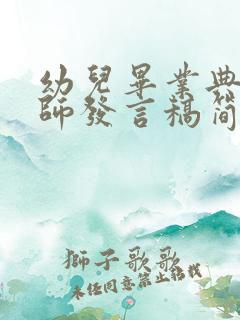 幼兒畢業典
師發言稿簡
獅子歌歌
未任同意禁止轉載